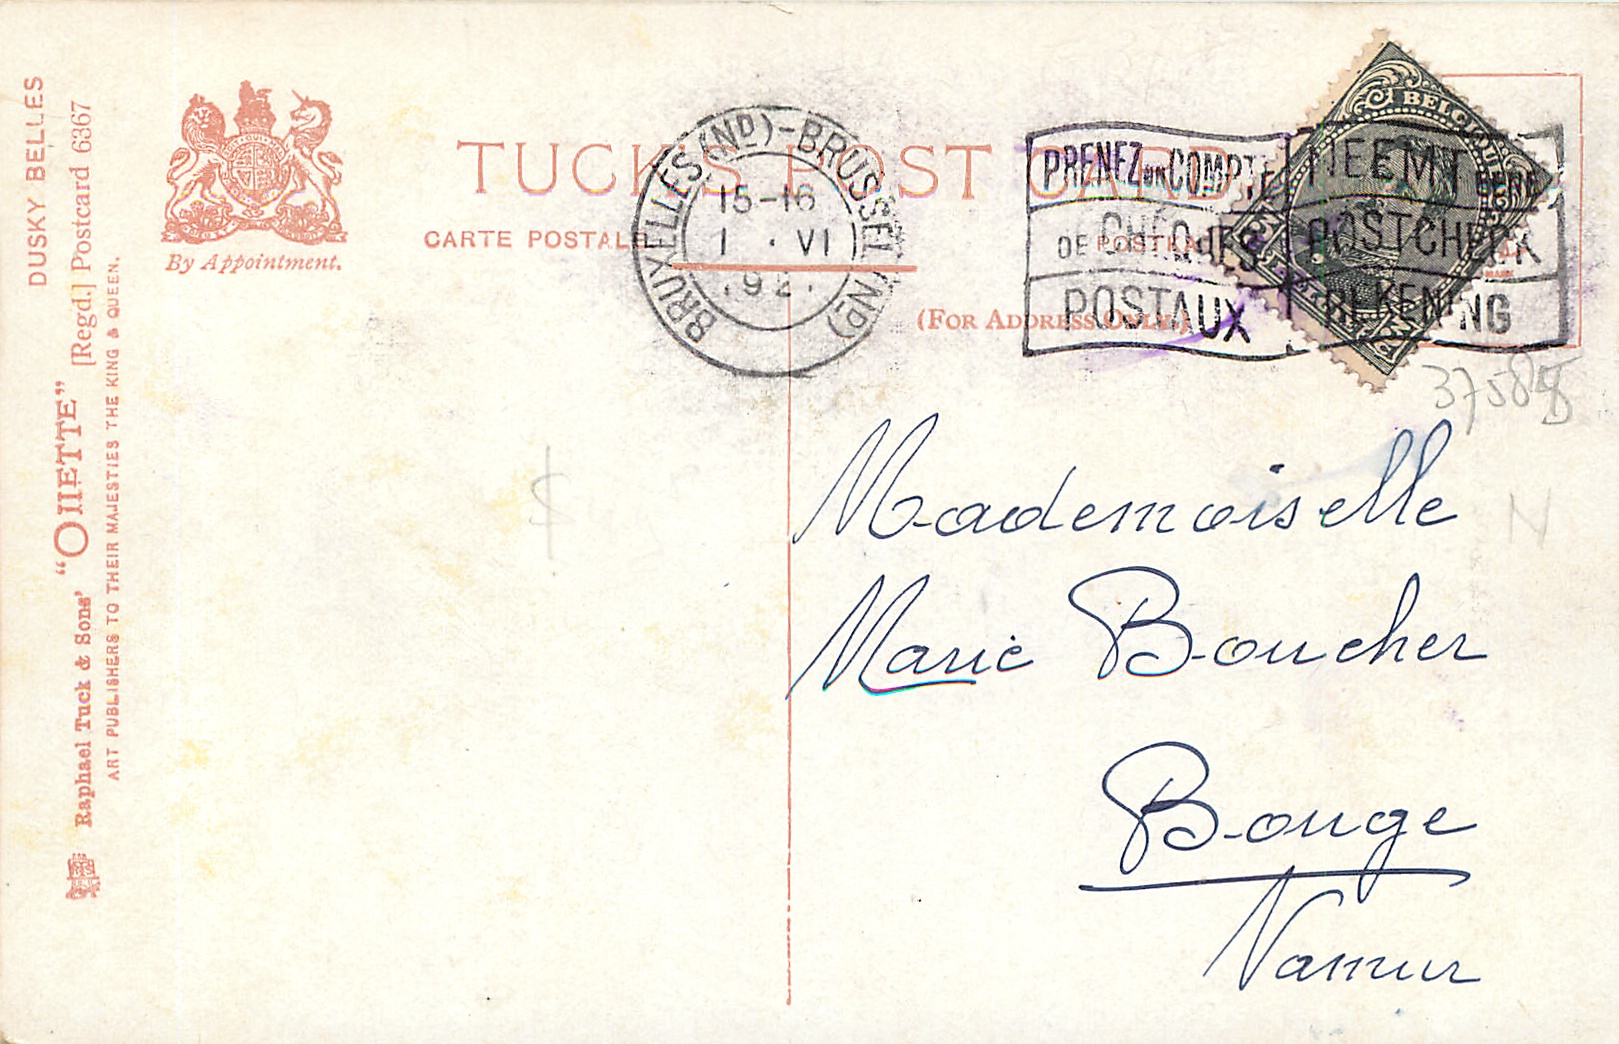 DUSKY BELLES
Raphael Tuck & Sons' "OIIETTE" [Regd.] Postcard 6367
ART PUBLISHERS TO THEIR MAJESTIES THE KING & QUEEN.
By Appointment.
TUCK'S POST CARD
CARTE POSTALE
(FOR ADDRESS ONLY.)
BRUXELLES (ND)-BRUSSEL (ND)
15-16
1 · VI
192
PRENEZ UN COMPTE
DE CHÈQUES
POSTAUX
NEEMT EENE
POSTCHECK
REKENING
BELGIQUE
3758
N
Mademoiselle
Marie Boucher
Bouge
Namur